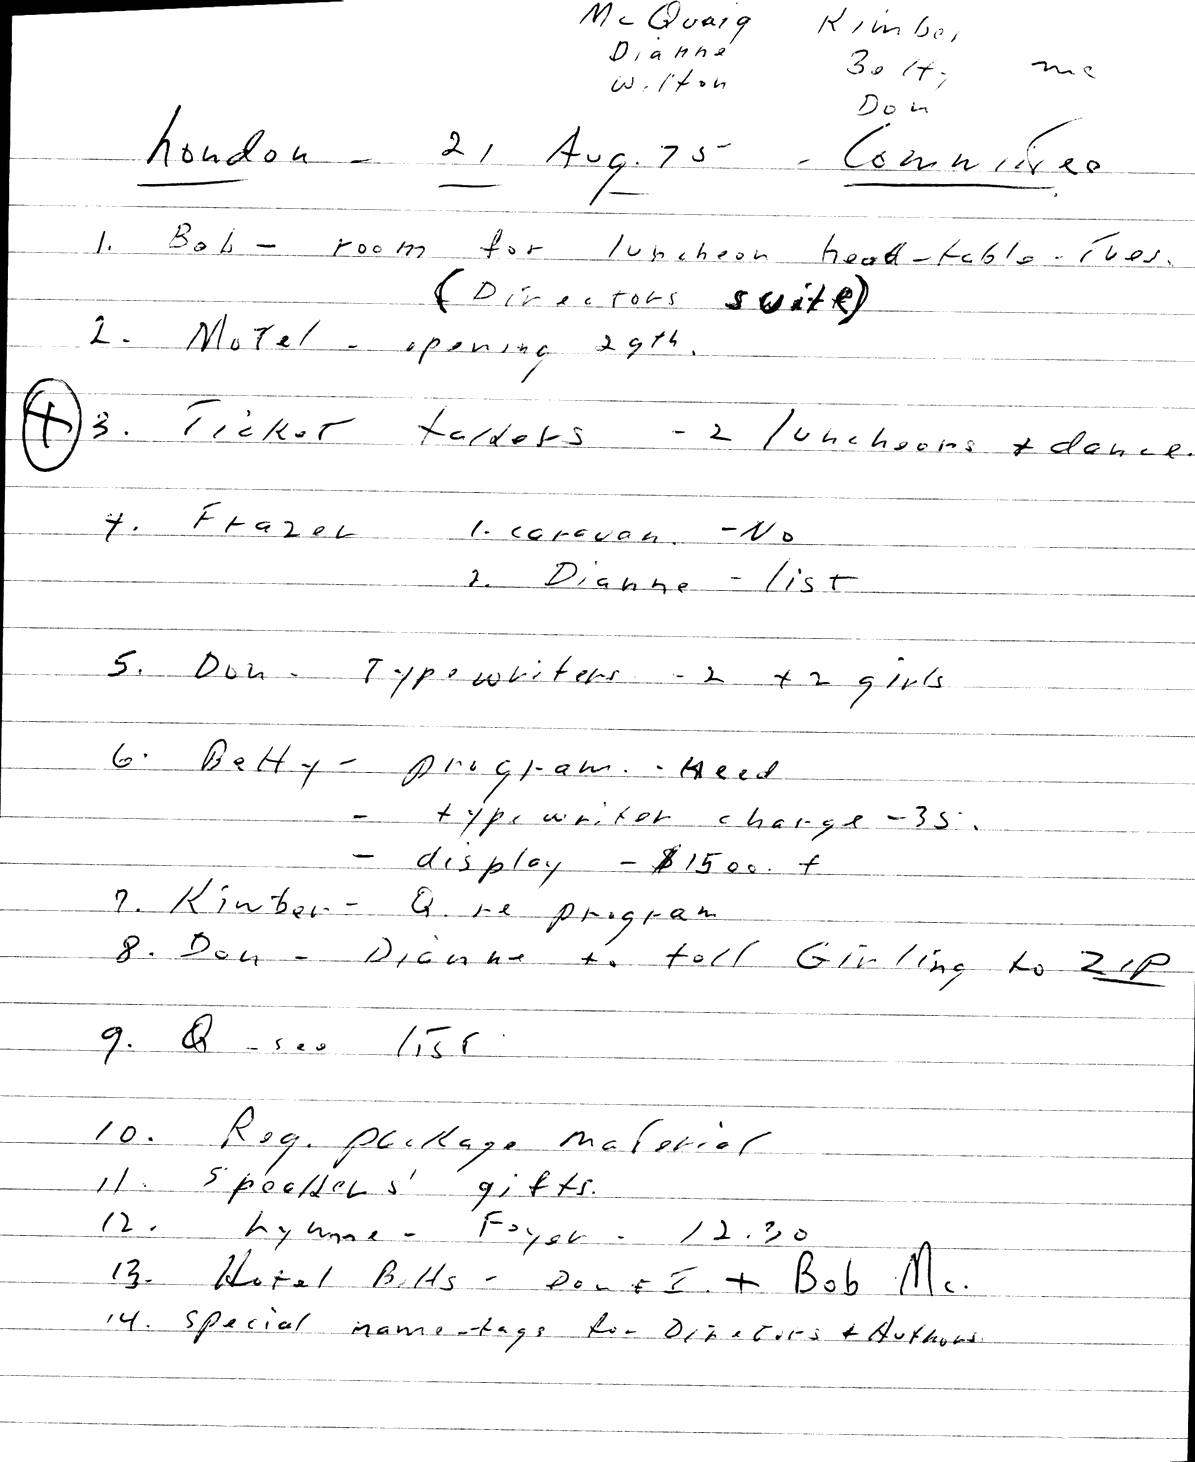 McQuaig Kimber
Dianne Betty me
Wilton Don
London - 21 Aug. 75 - Committee
1. Bob - room for luncheon head-table - Tues.
(Directors suite)
2. Motel - opening 29th.
+ 3. Ticket takers - 2 luncheons + dance.
4. Frazer 1. caravan. - No
2. Dianne - list
5. Don - Typewriters - 2 + 2 girls
6. Betty - program. - Need
- typewriter change - 35.
- display - $1500. +
7. Kimber - Q. re program
8. Don - Dianne to tell Girling to ZIP
9. Q - see list
10. Reg. package material
11. Speakers' gifts.
12. Lynne - Foyer - 12.30
13. Hotel Bills - Don + I. + Bob Mc.
14. special name-tags for Directors + Authors